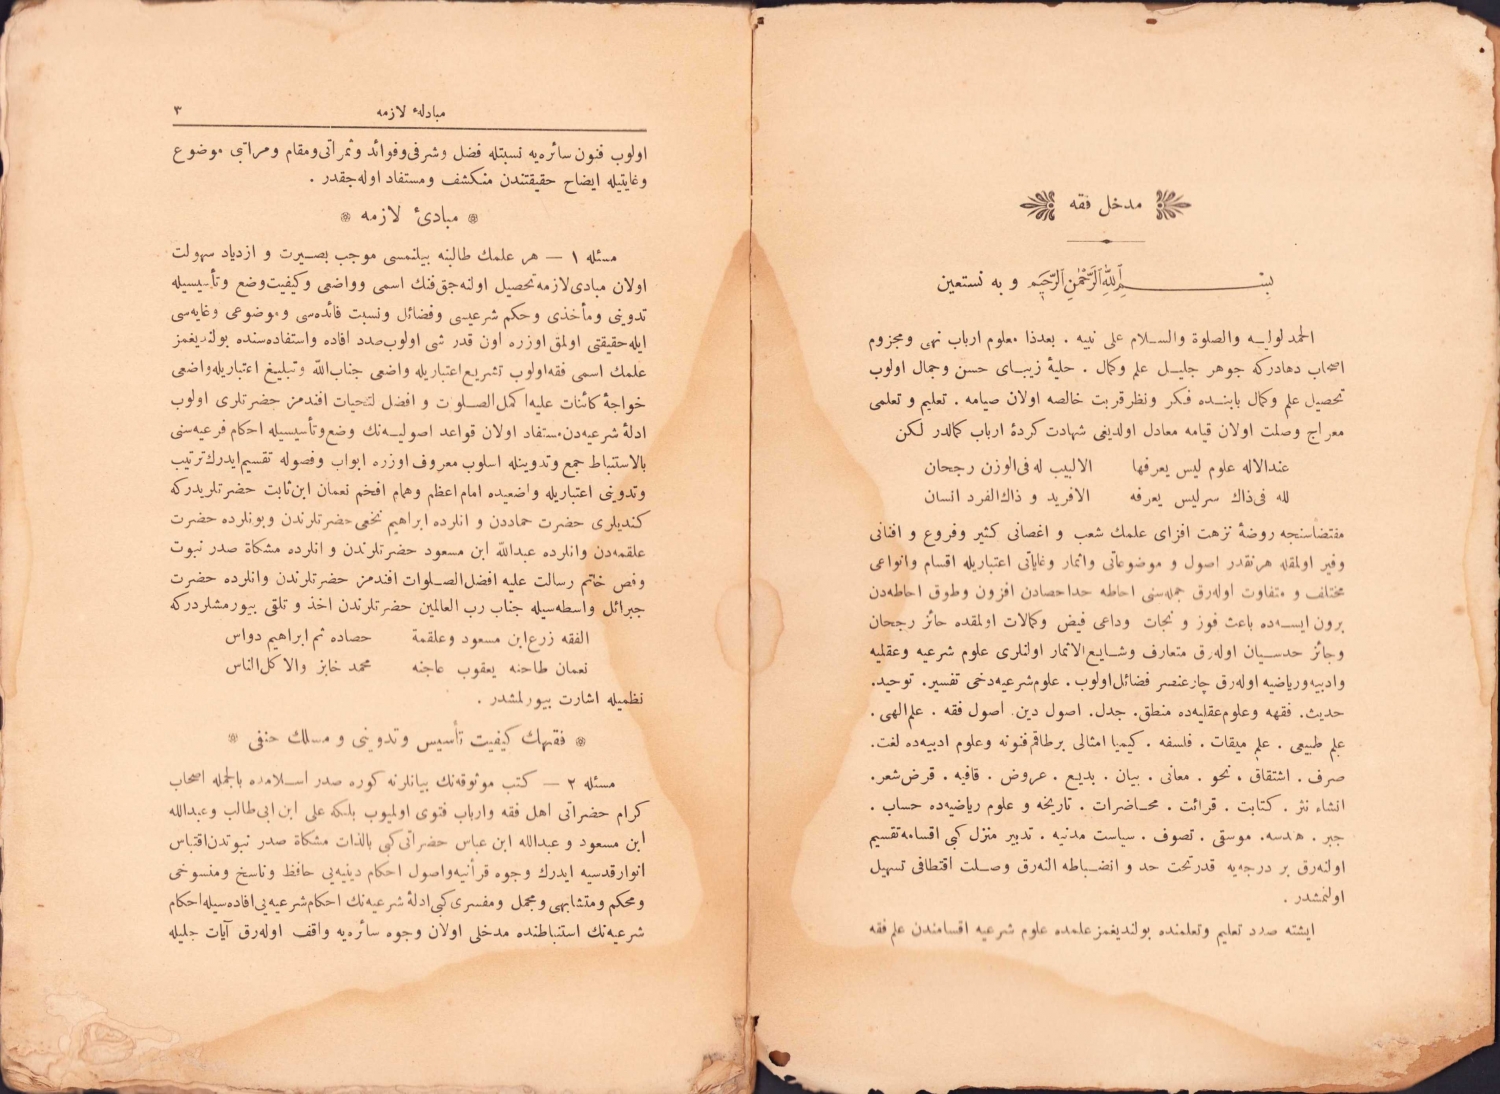 مدخل فقه
بسم الله الرحمن الرحيم و به نستعين
الحمد لوليه والصلوة والسلام على نبيه . بعدذا معلوم ارباب نهى ومجزوم
اصحاب دهادركه جوهر جليل علم وكمال . حليۀ زيباى حسن وجمال اولوب
تحصيل علم وكمال بابنده فكر ونظر قربت خالصه اولان صيامه . تعليم و تعلمى
معراج وصلت اولان قيامه معادل اولديغى شهادت كردۀ ارباب كمالدر لكن
عندالاله علوم ليس يعرفها الالبيب له فى الوزن رجحان
لله فى ذاك سر ليس يعرفه الافريد و ذاك الفرد انسان
مقتضاسنجه روضۀ نزهت افزاى علمك شعب و اغصانى كثير وفروع و افنانى
وفير اولمقله هر نقدر اصول و موضوعاتى واثمار وغاياتى اعتباريله اقسام وانواعى
مختلف و متفاوت اوله رق جمله سنى احاطه حد احصادن افزون وطوق احاطه دن
برون ايسه ده باعث فوز و نجات وداعى فيض وكمالات اولمقده حائز رجحان
وجائز حدسيان اوله رق متعارف وشايع الاثمار اولنلرى علوم شرعيه وعقليه
وادبيه ورياضيه اوله رق چار عنصر فضائل اولوب . علوم شرعيه دخى تفسير . توحيد .
حديث . فقهه وعلوم عقليه ده منطق . جدل . اصول دين . اصول فقه . علم الهى .
علم طبيعى . علم ميقات . فلسفه . كيميا امثالى بر طاقم فنونه وعلوم ادبيه ده لغت .
صرف . اشتقاق . نحو . معانى . بيان . بديع . عروض . قافيه . قرض شعر .
انشاء نثر . كتابت . قرائت . محاضرات . تاريخه و علوم رياضيه ده حساب .
جبر . هندسه . موسقى . تصوف . سياست مدنيه . تدبير منزل كبى اقسامه تقسيم
اولنه رق بر درجه يه قدر تحت حد و انضباطه النه رق وصلت اقتطافى تسهيل
اولنمشدر .
ايشته صدد تعليم وتعلمنده بولنديغمز علمده علوم شرعيه اقسامندن علم فقه
مبادلۀ لازمه ٣
اولوب فنون سائره يه نسبتله فضل وشرفى وفوائد وثمراتى ومقام ومراتبى موضوع
وغايتيله ايضاح حقيقتندن منكشف ومستفاد اوله جقدر .
مبادئ لازمه
مسئله ١ — هر علمك طالبنه بيلنمسى موجب بصيرت و ازدياد سهولت
اولان مبادى لازمه تحصيل اولنه جق فنك اسمى وواضعى وكيفيت وضع وتأسيسيله
تدوينى ومأخذى وحكم شرعيسى وفضائل ونسبت فائده سى وموضوعى وغايه سى
ايله حقيقتى اولمق اوزره اون قدر شى اولوب صدد افاده واستفاده سنده بولنديغمز
علمك اسمى فقه اولوب تشريع اعتباريله واضعى جناب الله وتبليغ اعتباريله واضعى
خواجۀ كائنات عليه اكمل الصلوات و افضل التحيات افندمز حضرتلرى اولوب
ادلۀ شرعيه دن مستفاد اولان قواعد اصوليه نك وضع وتأسيسيله احكام فرعيه سنى
بالاستنباط جمع وتدوينله اسلوب معروف اوزره ابواب وفصوله تقسيم ايدرك ترتيب
وتدوينى اعتباريله واضعيده امام اعظم وهمام افخم نعمان ابن ثابت حضرتلريدركه
كنديلرى حضرت حماددن و انلرده ابراهيم نخعى حضرتلرندن وبونلرده حضرت
علقمه دن وانلرده عبدالله ابن مسعود حضرتلرندن و انلرده مشكاة صدر نبوت
وفص خاتم رسالت عليه افضل الصلوات افندمز حضرتلرندن وانلرده حضرت
جبرائل واسطه سيله جناب رب العالمين حضرتلرندن اخذ و تلقى بيورمشلردركه
الفقه زرع ابن مسعود وعلقمة حصاده ثم ابراهيم دواس
نعمان طاحنه يعقوب عاجنه محمد خابز والاكل الناس
نظميله اشارت بيورلمشدر .
فقهك كيفيت تأسيس وتدوينى و مسلك حنفى
مسئله ٢ — كتب موثوقه نك بيانلرنه كوره صدر اسلامده بالجمله اصحاب
كرام حضراتى اهل فقه وارباب فتوى اولميوب بلكه على ابن ابى طالب وعبدالله
ابن مسعود و عبدالله ابن عباس حضراتى كبى بالذات مشكاة صدر نبوتدن اقتباس
انوار قدسيه ايدرك وجوه قرأنيه واصول احكام دينيه يى حافظ وناسخ ومنسوخى
ومحكم ومتشابهى ومجمل ومفسرى كبى ادلۀ شرعيه نك احكام شرعيه يى افاده سيله احكام
شرعيه نك استنباطنده مدخلى اولان وجوه سائره يه واقف اوله رق آيات جليله